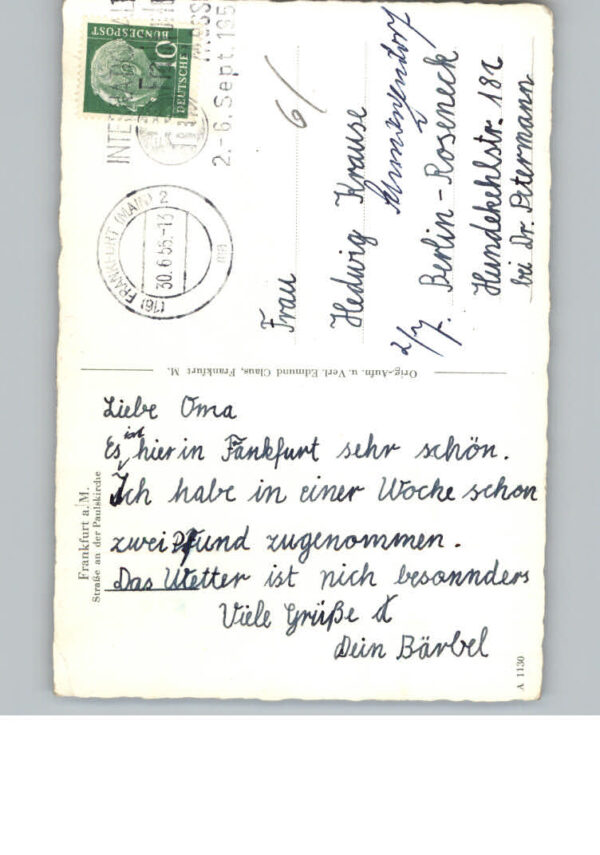 10
DEUTSCHE
BUNDESPOST
2.-6. Sept. 195
(16) FRANKFURT (MAIN) 2
30.6.56.-13
ma
6/
Frau
Hedwig Krause
Berlin-Roseneck
Hundekehlstr. 182
bei Dr. Petermann
Orig.-Aufn. u. Verl. Edmund Claus, Frankfurt M.
Frankfurt a. M.
Straße an der Paulskirche
Liebe Oma
Es ist hier in Fankfurt sehr schön.
Ich habe in einer Woche schon
zwei Pfund zugenommen.
Das Wetter ist nich besonnders
Viele Grüße
Dein Bärbel
A 1130